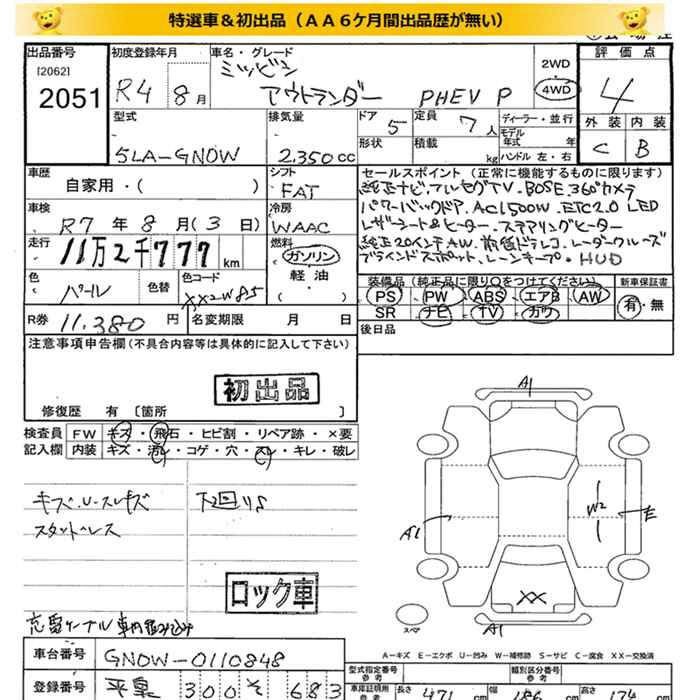 特選車＆初出品（ＡＡ６ケ月間出品歴が無い）
出品番号
[2062]
2051
初度登録年月
R4 8月
車名・グレード
ミツビシ
アウトランダー PHEV P
2WD
4WD
評価点
4
外装 内装
C B
型式
5LA-GN0W
排気量
2,350cc
ドア
5
形状
定員
7人
積載
kg
ディーラー・並行
モデル年式 年
ハンドル 左・右
車歴
自家用・( )
シフト
FAT
車検
R7年8月(3日)
冷房
WAAC
走行
11万2千777km
燃料
ガソリン
軽油
( )
色
パール
色替
色コード
XX2W85
R券 11,380円
名変期限 月 日
セールスポイント（正常に機能するものに限ります）
純正ナビ・フルセグTV・BOSE・360°カメラ
パワーバックドア・AC1500W・ETC2.0 LED
レザーシート&ヒーター・ステアリングヒーター
純正20インチAW・前後ドラレコ・レーダークルーズ
ブラインドスポット・レーンキープ・HUD
装備品（純正品に限り○をつけてください）
PS PW ABS エアB AW
SR ナビ TV カワ
新車保証書
有・無
後日品
注意事項申告欄(不具合内容等は具体的に記入して下さい)
初出品
修復歴 有 〔箇所 〕
検査員 FW キズ・飛石・ヒビ割・リペア跡・×要
記入欄 内装 キズ・汚レ・コゲ・穴・スレ・キレ・破レ
キズ・U・スレキズ
スタッドレス
下回りS
ロック車
充電ケーブル 車内
A1
A1
W2
E
XX
A1
スペア
A－キズ E－エクボ U－凹み W－補修跡 S－サビ C－腐食 XX－交換済
車台番号 GN0W-0110848
登録番号 平泉 300 そ 683
型式指定番号
参考
類別区分番号
参考
車庫証明用
参考
長さ 471 cm
幅 186 cm
高さ 174 cm